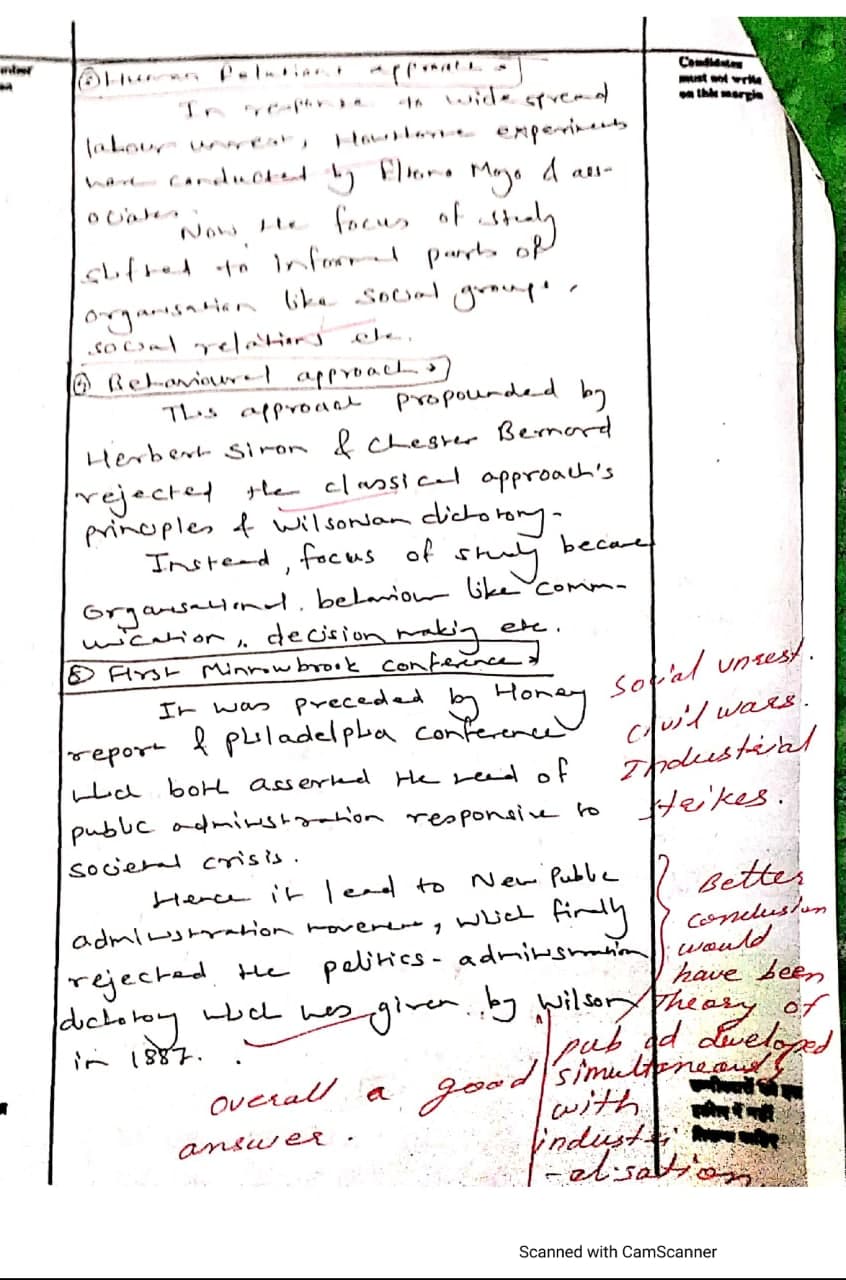 ③ Human Relations approach →
In response to widespread
labour unrest, Hawthorne experiments
were conducted by Eltono Mayo & ass-
ociates.
Now the focus of study
shifted to informal parts of
organisation like social groups,
social relations etc.
④ Behavioural approach →
This approach propounded by
Herbert Simon & Chester Bernard
rejected the classical approach's
principles & Wilsonian dichotomy.
Instead, focus of study became
Organisational behaviour like comm-
unication, decision making etc.
⑤ First Minnowbrook conference →
It was preceded by Honey
report & Philadelphia conference
which both asserted the need of
public administration responsive to
societal crisis.
Hence it lead to New Public
administration movement, which firmly
rejected the politics - administration
dichotomy which was given by Wilson
in 1887.
Candidates
must not write
on this margin
Social unrest.
civil wars.
Industrial
strikes.
Better
conclusion
would
have been
Theory of
pub ad developed
simultaneously
with
industri
-alisation
overall a good
answer.
Scanned with CamScanner